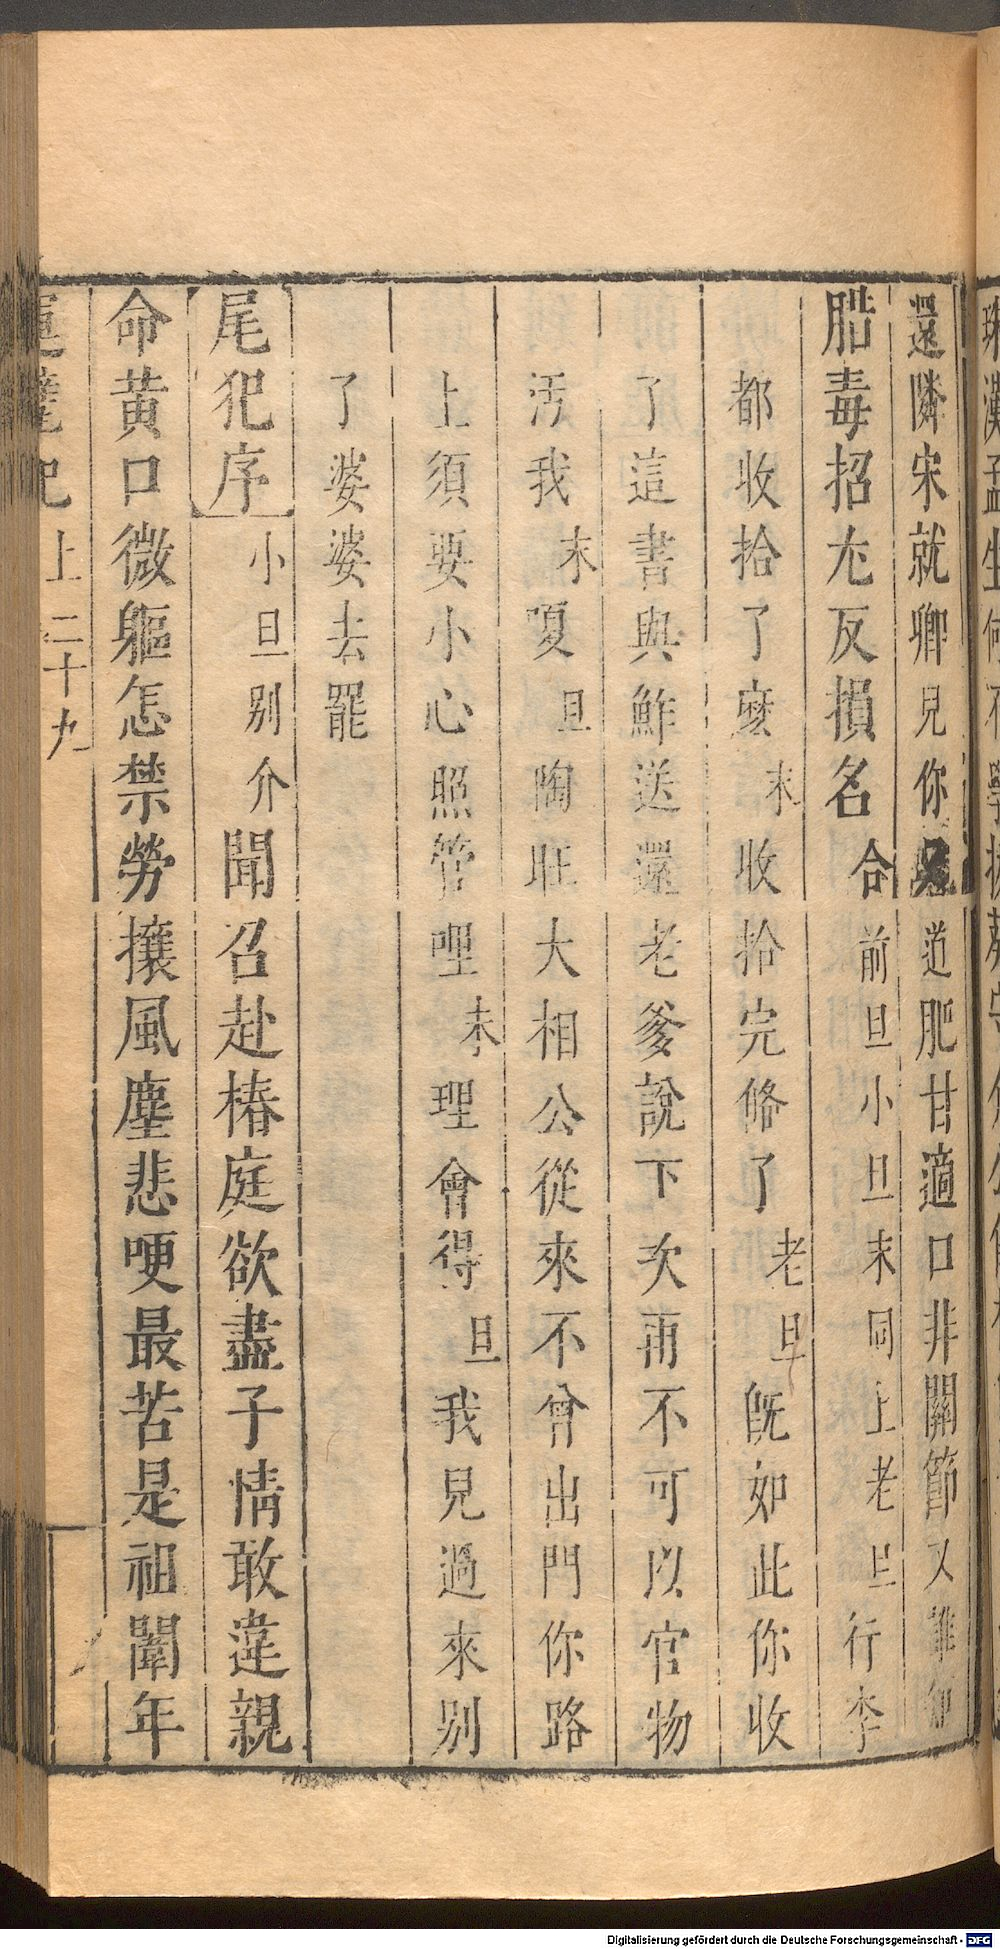 還隣宋就卿見你道肥甘適口非關節又誰知
腊毒招尤反損名合前旦小旦末同上老旦行李
都收拾了麼末收拾完俻了老旦旣如此你收
了這書與鮓送還老爹說下次再不可以官物
汚我末嗄旦陶旺大相公從來不曾出門你路
上須要小心照管哩末理會得旦我見過來別
了婆婆去罷
尾犯序小旦別介聞召赴椿庭欲盡子情敢違親
命黃口微軀怎禁勞攘風塵悲哽最苦是祖闈年
運甓記上二十九
Digitalisierung gefördert durch die Deutsche Forschungsgemeinschaft - DFG